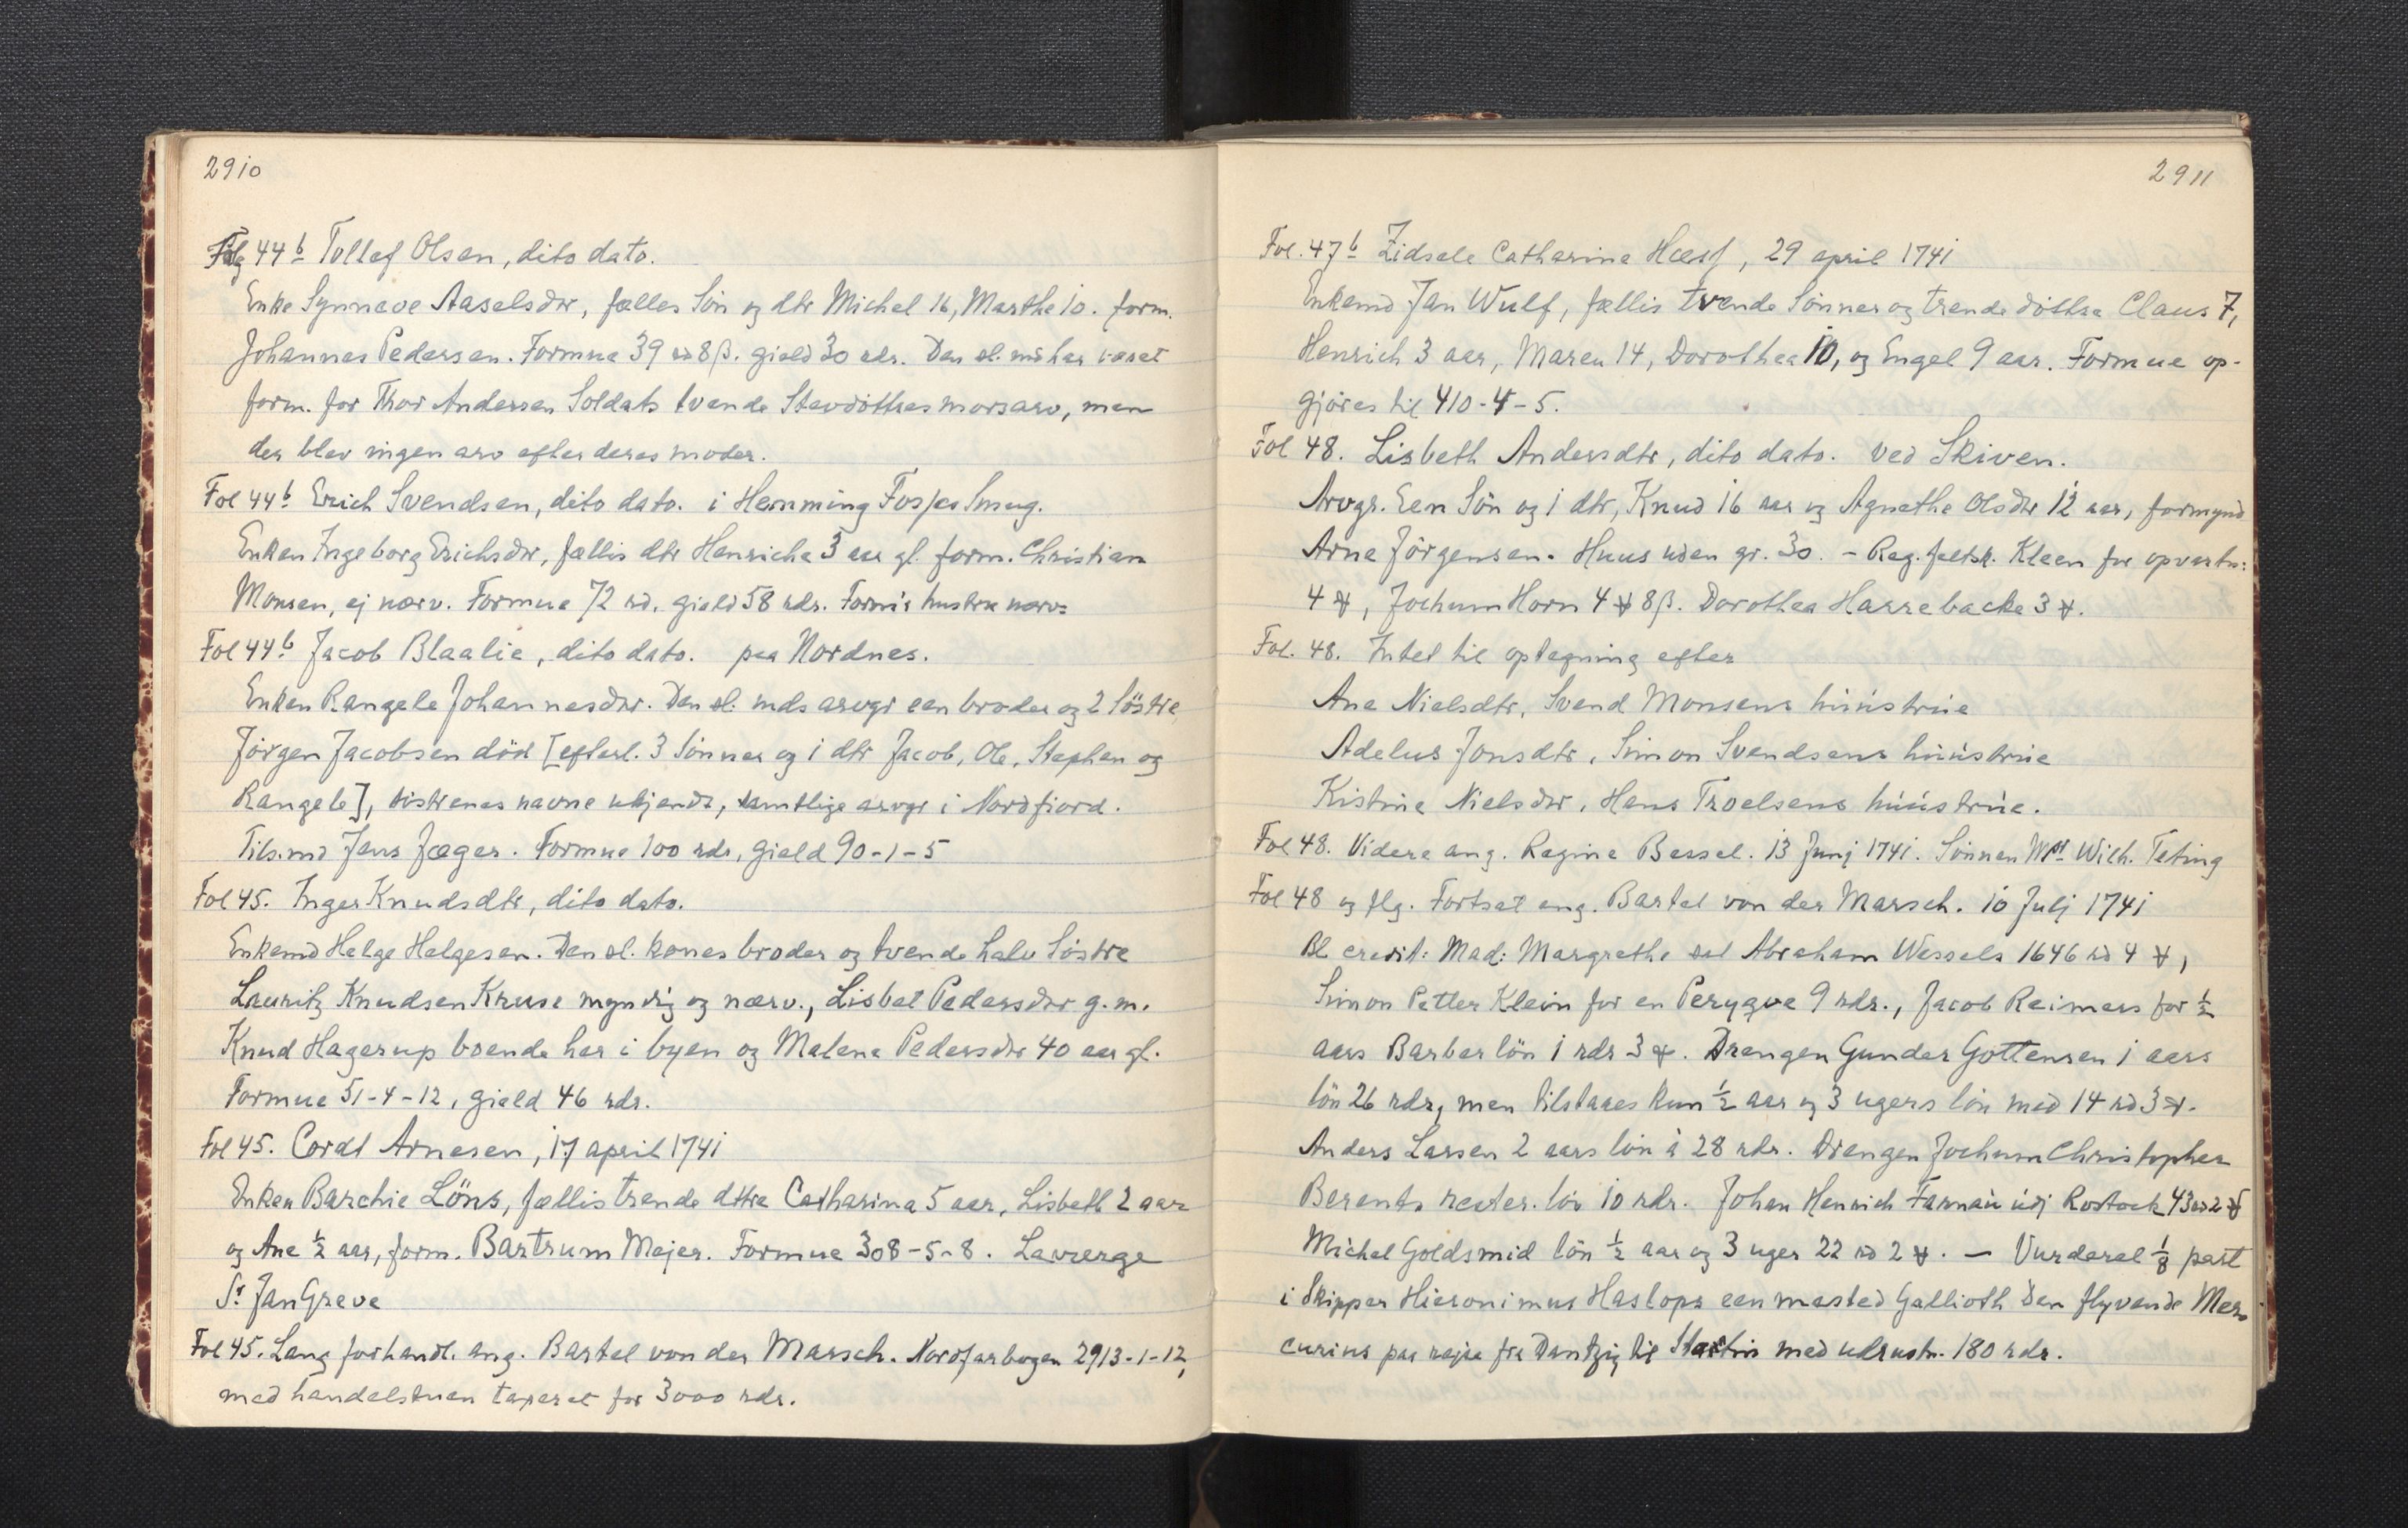 2910
Fol 44b Tollef Olsen, dito dato.
Enke Synneve Aaselsdtr, fælles Sön og dtr Michel 16, Marthe 10. form.
Johannes Pedersen. Formue 39 rd 8 ß. gield 30 rdr. Den sl. md har været
form. for Thor Andersen Soldats tvende Stevdöttres morsarv, men
der blev ingen arv efter deres moder.
Fol 44b Erich Svendsen, dito dato. i Hemming Fosses Smug.
Enken Ingeborg Erichsdtr, fællis dtr Henriche 3 aar gl. form. Christian
Monsen, ej nærv. Formue 72 rd. gield 58 rdr. Form's hustrue nærv:
Fol 44b Jacob Blaalie, dito dato. paa Nordnes.
Enken Rangele Johannesdtr. Den sl. mds arvgr een broder og 2 Söstre
Jörgen Jacobsen död [efterl. 3 Sönner og 1 dtr Jacob, Ole, Stephen og
Rangele], söstrenes navne ukjendt, samtlige arvgr i Nordfiord.
Tils.md Jens Jæger. Formue 100 rdr, gield 90-1-5
Fol 45. Inger Knudsdtr, dito dato.
Enkemd Helge Helgesen. Den sl. kones broder og tvende halv Söstre
Lauritz Knudsen Kruse myndig og nærv., Lisbet Pedersdtr g.m.
Knud Hagerup boende her i byen og Malene Pedersdtr 40 aar gl.
Formue 51-4-12, gield 46 rdr.
Fol 45. Cordt Arnesen, 17 april 1741
Enken Barchie Löns, fællis trende dttre Catharina 5 aar, Lisbeth 2 aar
og Ane ½ aar, form. Bartrum Mejer. Formue 308-5-8. Lavverge
Sr Jan Greve
Fol 45. Lang forhandl. ang. Bartel von der Marsch. Nordfarbogen 2913-1-12,
med handelstuen taxeret for 3000 rdr.
2911
Fol. 47b Zidsele Catharina Hæsf, 29 april 1741
Enkemd Jan Wulf, fællis tvende Sönner og trende döttre Claus 7,
Henrich 3 aar, Maren 14, Dorothea 10, og Engel 9 aar. Formue op-
gjöres til 410-4-5.
Fol 48. Lisbeth Andersdtr, dito dato. ved Skiven.
Arvgr. Een Sön og 1 dtr, Knud 16 aar og Agnethe Olsdtr 12 aar, formynd
Arne Jörgensen. Huus uden gr. 30. - Reg. feltsk. Kleen for opvartn:
4 ₰, Jochum Horn 4 ₰ 8 ß. Dorothea Harrebacke 3 ₰.
Fol. 48. Intet til optegning efter
Ane Nielsdtr, Svend Monsens huustrue
Adelus Jonsdtr, Simon Svendsens huustrue
Kistine Nielsdtr, Hans Troelsens huustrue.
Fol 48. Videre ang. Regine Bessel. 13 Junj 1741. Sönnen Mst Wilh. Teting
Fol 48 og flg. Fortsat ang. Bartel von der Marsch. 10 Julj 1741
Bl credit: Mad: Margrethe sal Abraham Wessels 1646 rd 4 ₰,
Simon Petter Klein for en Peryqve 9 rdr., Jacob Reimers for ½
aars Barber lön 1 rdr 3 ₰. Drengen Gunder Gottensen 1 aars
lön 26 rdr, men tilstaaes kun ½ aar og 3 ugers lön med 14 rd 3 ₰.
Anders Larsen 2 aars lön à 28 rdr. Drengen Jochum Christopher
Berents rester. lön 10 rdr. Johan Henrich Farnau udj Rostock 43 rd 2 ₰
Michel Goldsmid lön ½ aar og 3 uger 22 rd 2 ₰. — Vurderet ⅛ part
i Skipper Hieronimus Haslops een masted Gallioth den flyvende Mer-
curius paa rejse fra Dantzig til Stettin med udrustn. 180 rdr.